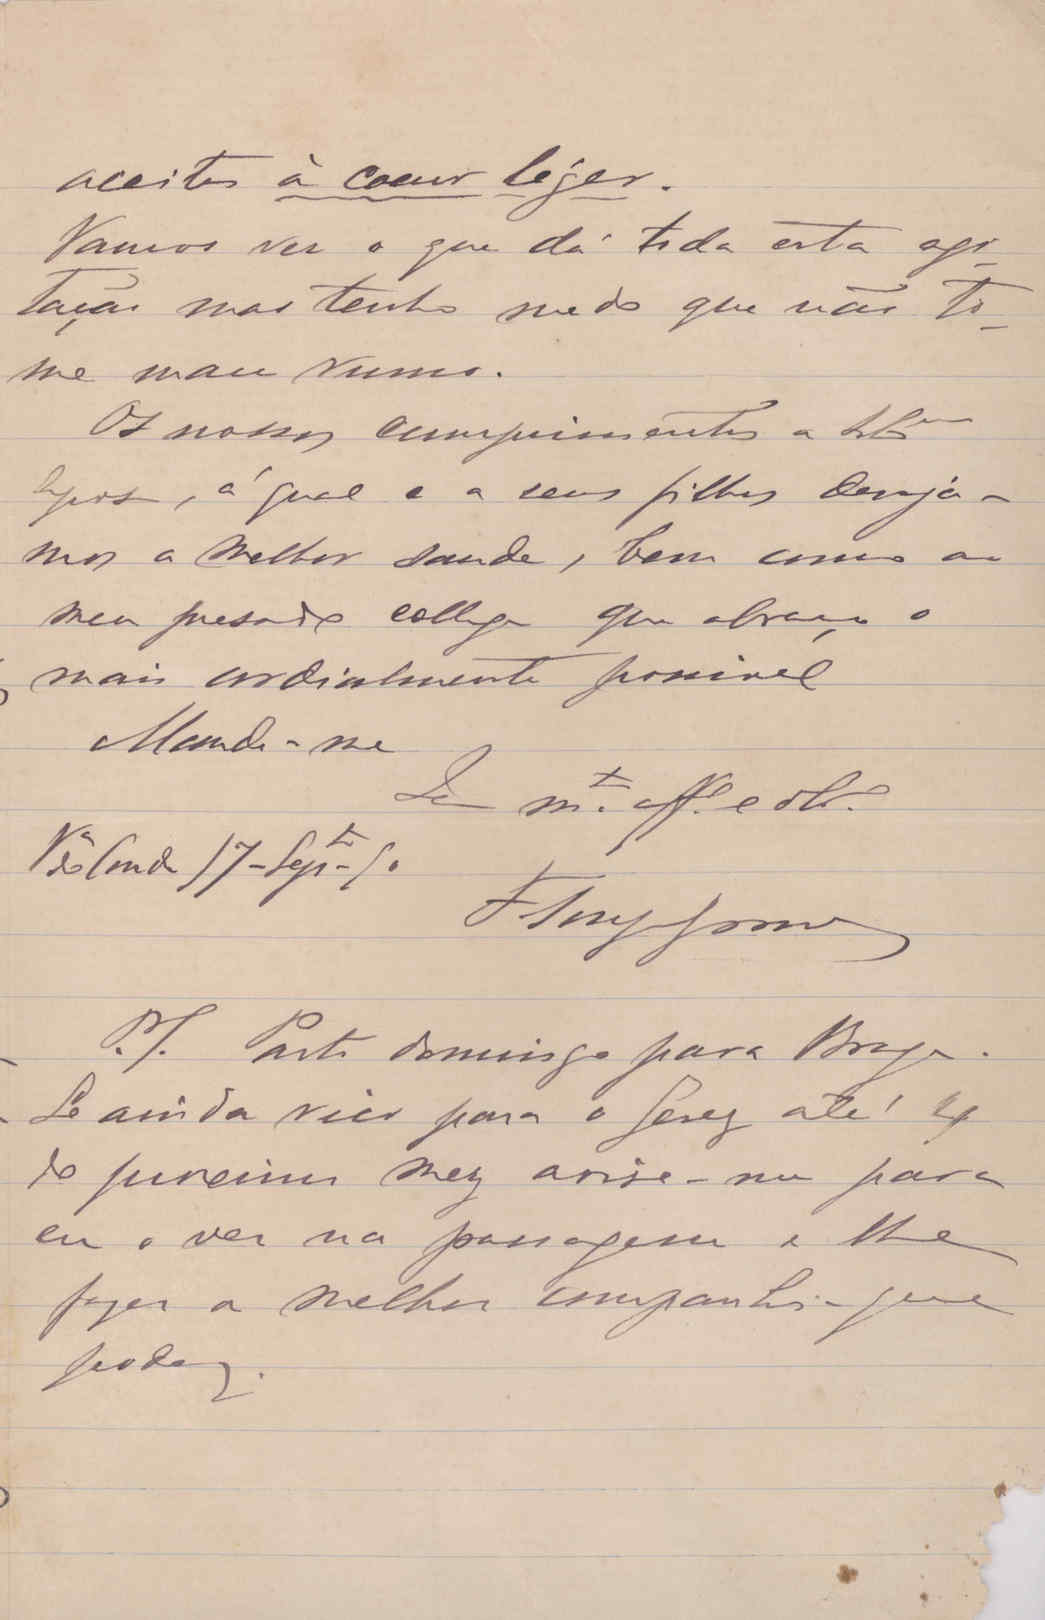 aceites à coeur léger.
Vamos ver o que dá toda esta agi-
tação mas tenho medo que não to-
me mau rumo.
Os nossos cumprimentos a
Espoza, á qual e a seus filhos deseja-
mos a melhor saude, bem como ao
meu presado collega que abraço o
mais cordialmente possivel
Mande-me
De m.to aff.o e obr.o
V.a do Conde 17-Sept-90
P.S. Parto domingo para Braga.
Se ainda vier para o Gerez até
do proximo mez avise-me para
eu o ver na passagem e lhe
fazer a melhor companhia que
poder.